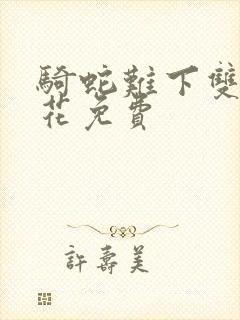 騎蛇難下雙
花免費
許壽美